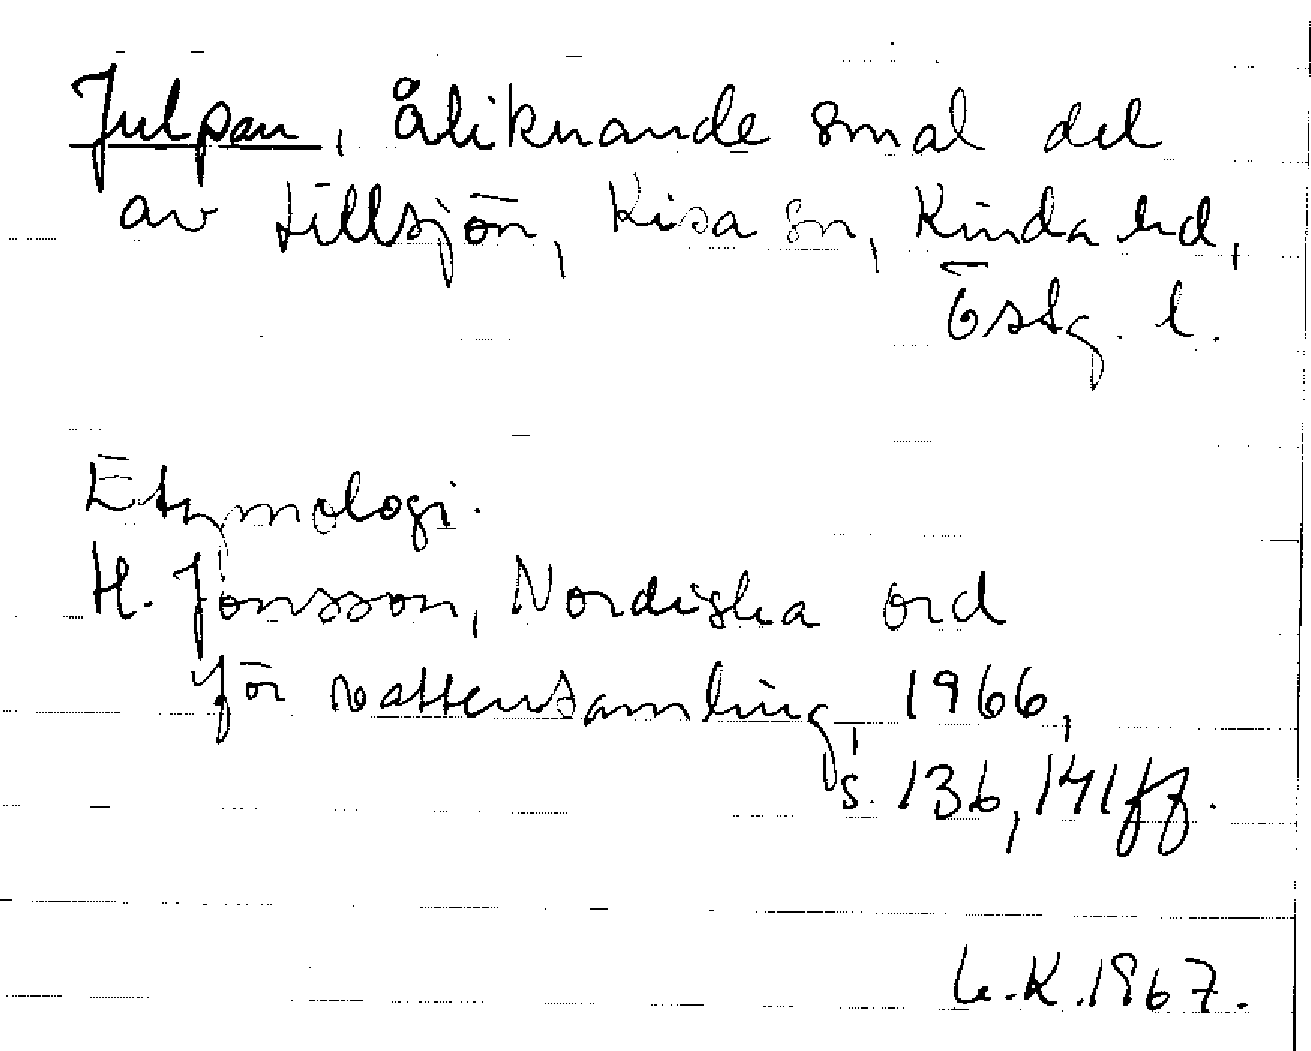 Julpan, åliknande smal del
av Lillsjön, Kisa sn, Kinda hd,
Östg. l.
Etymologi.
H. Jonsson, Nordiska ord
för vattensamling 1966,
s. 136, 141 ff.
L.K. 1967.